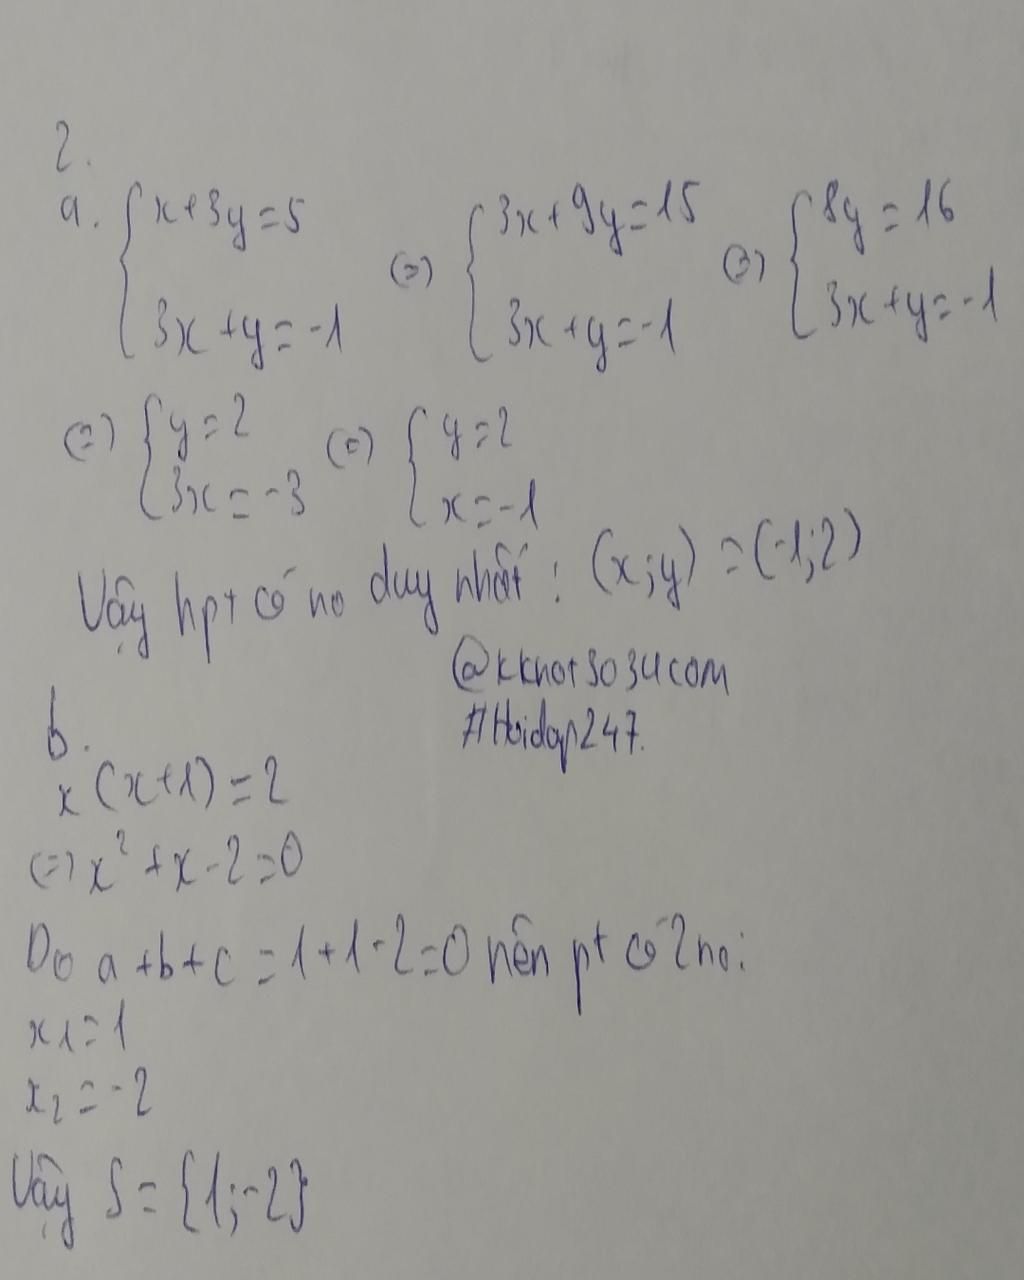 2.
a. { x+3y=5 (=) { 3x+9y=15 (=) { 8y=16
3x+y=-1 3x+y=-1 3x+y=-1
(=) { y=2 (=) { y=2
3x=-3 x=-1
Vậy hpt có no duy nhất: (x;y)=(-1;2)
@kknot3034com
#Hoidap247.
b.
x(x+1)=2
(=) x²+x-2=0
Do a+b+c=1+1-2=0 nên pt có 2 no:
x₁=1
x₂=-2
Vậy S={1;-2}